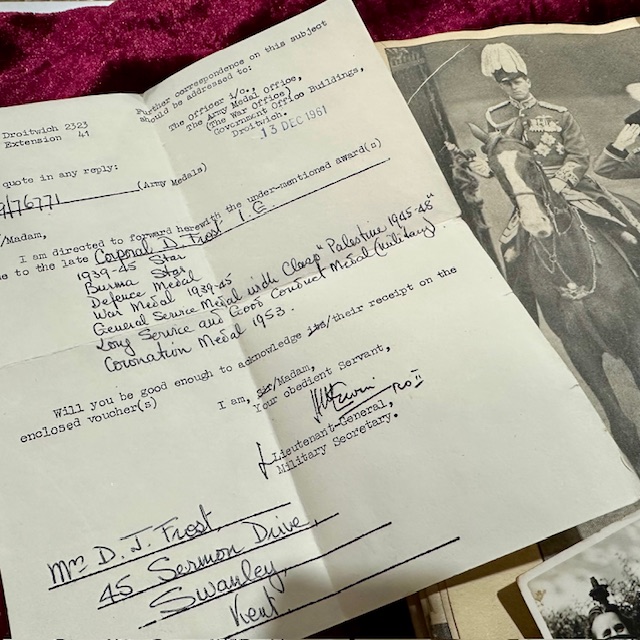 Further correspondence on this subject
should be addressed to:
The Officer i/c.,
The Army Medal Office,
(The War Office)
Government Office Buildings,
Droitwich.
13 DEC 1961
Droitwich 2323
Extension 41
quote in any reply:
/76771 (Army Medals)
/Madam,
I am directed to forward herewith the under-mentioned award(s)
to the late Corporal D. Frost
1939-45 Star
Burma Star
Defence Medal
War Medal 1939-45
General Service Medal with Clasp "Palestine 1945-48"
Long Service and Good Conduct Medal (military)
Coronation Medal 1953.
Will you be good enough to acknowledge its/their receipt on the
enclosed voucher(s)
I am, Sir/Madam,
Your obedient Servant,
Lieutenant-General,
Military Secretary.
Mrs D. J. Frost
45, Sermon Drive,
Swanley,
Kent.